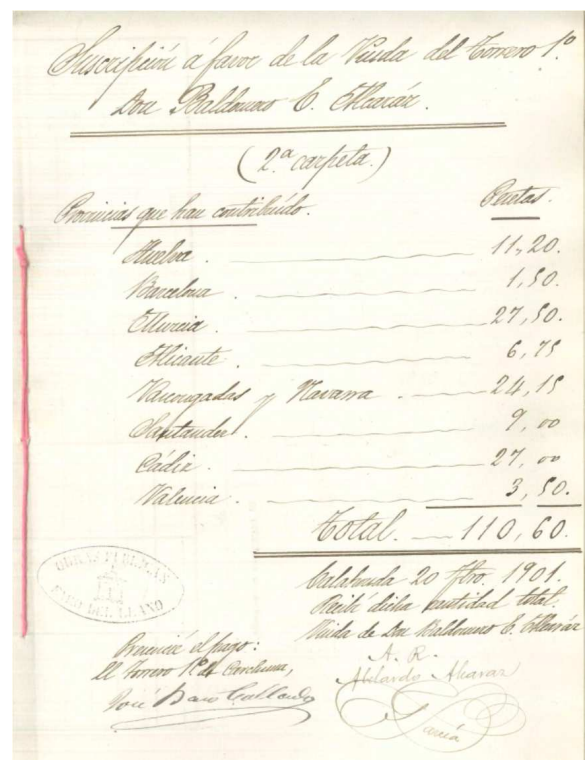 Suscripción á favor de la Viuda del Torrero 1º
Don Baldomero E. Alcaráz.
(2ª carpeta.)
Provincias que han contribuído. Pesetas.
Huelva. 11,20.
Barcelona. 1,50.
Murcia. 27,50.
Alicante. 6,75
Vascongadas y Navarra. 24,15
Santander. 9,00
Cádiz. 27,00
Valencia. 3,50.
Total. 110,60.
OBRAS PUBLICAS
FARO DEL LLANO
Calahonda 20 Fbro. 1901.
Recibí dicha cantidad total.
Viuda de Don Baldomero E. Alcaráz
A. R.
Abelardo Alcaraz
García
Presencié el pago:
El Torrero
José Haro